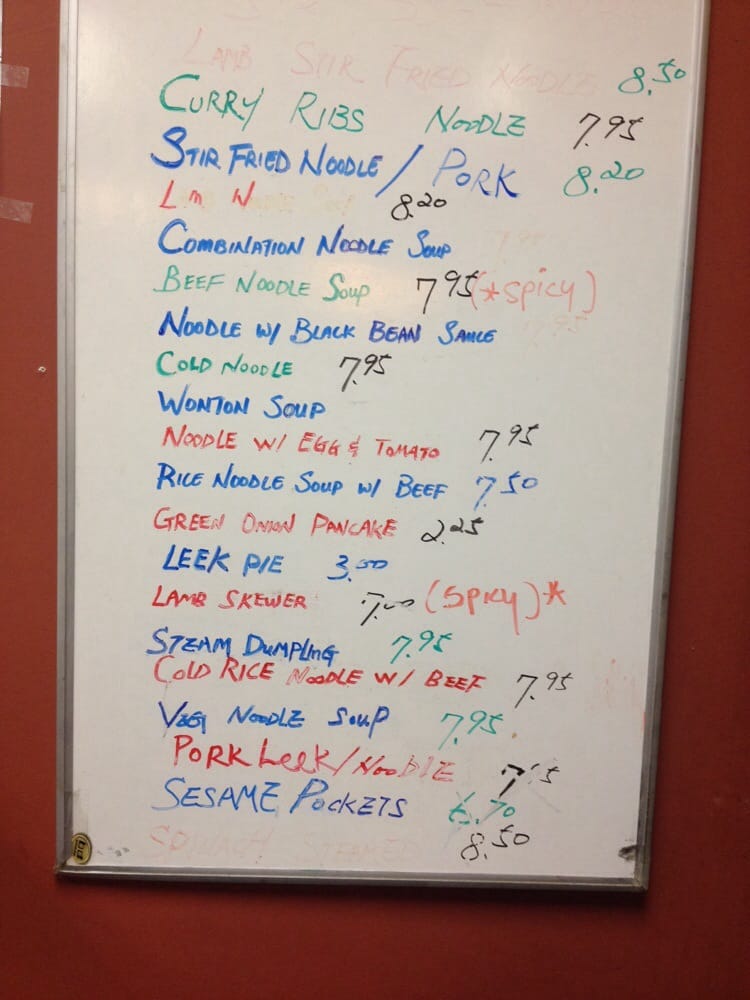 LAMB STIR FRIED NOODLE 8.50
CURRY RIBS NOODLE 7.95
STIR FRIED NOODLE / PORK 8.20
L m N 8.20
COMBINATION NOODLE SOUP 7.95
BEEF NOODLE SOUP 7.95 (*SPICY)
NOODLE W/ BLACK BEAN SAUCE 7.95
COLD NOODLE 7.95
WONTON SOUP
NOODLE W/ EGG & TOMATO 7.95
RICE NOODLE SOUP W/ BEEF 7.50
GREEN ONION PANCAKE 2.25
LEEK PIE 3.50
LAMB SKEWER (SPICY)*
STEAM DUMPLING 7.95
COLD RICE NOODLE W/ BEEF 7.95
VEGI NOODLE SOUP 7.95
PORK LEEK/NOODLE
SESAME POCKETS 6.70
STEAMED 8.50